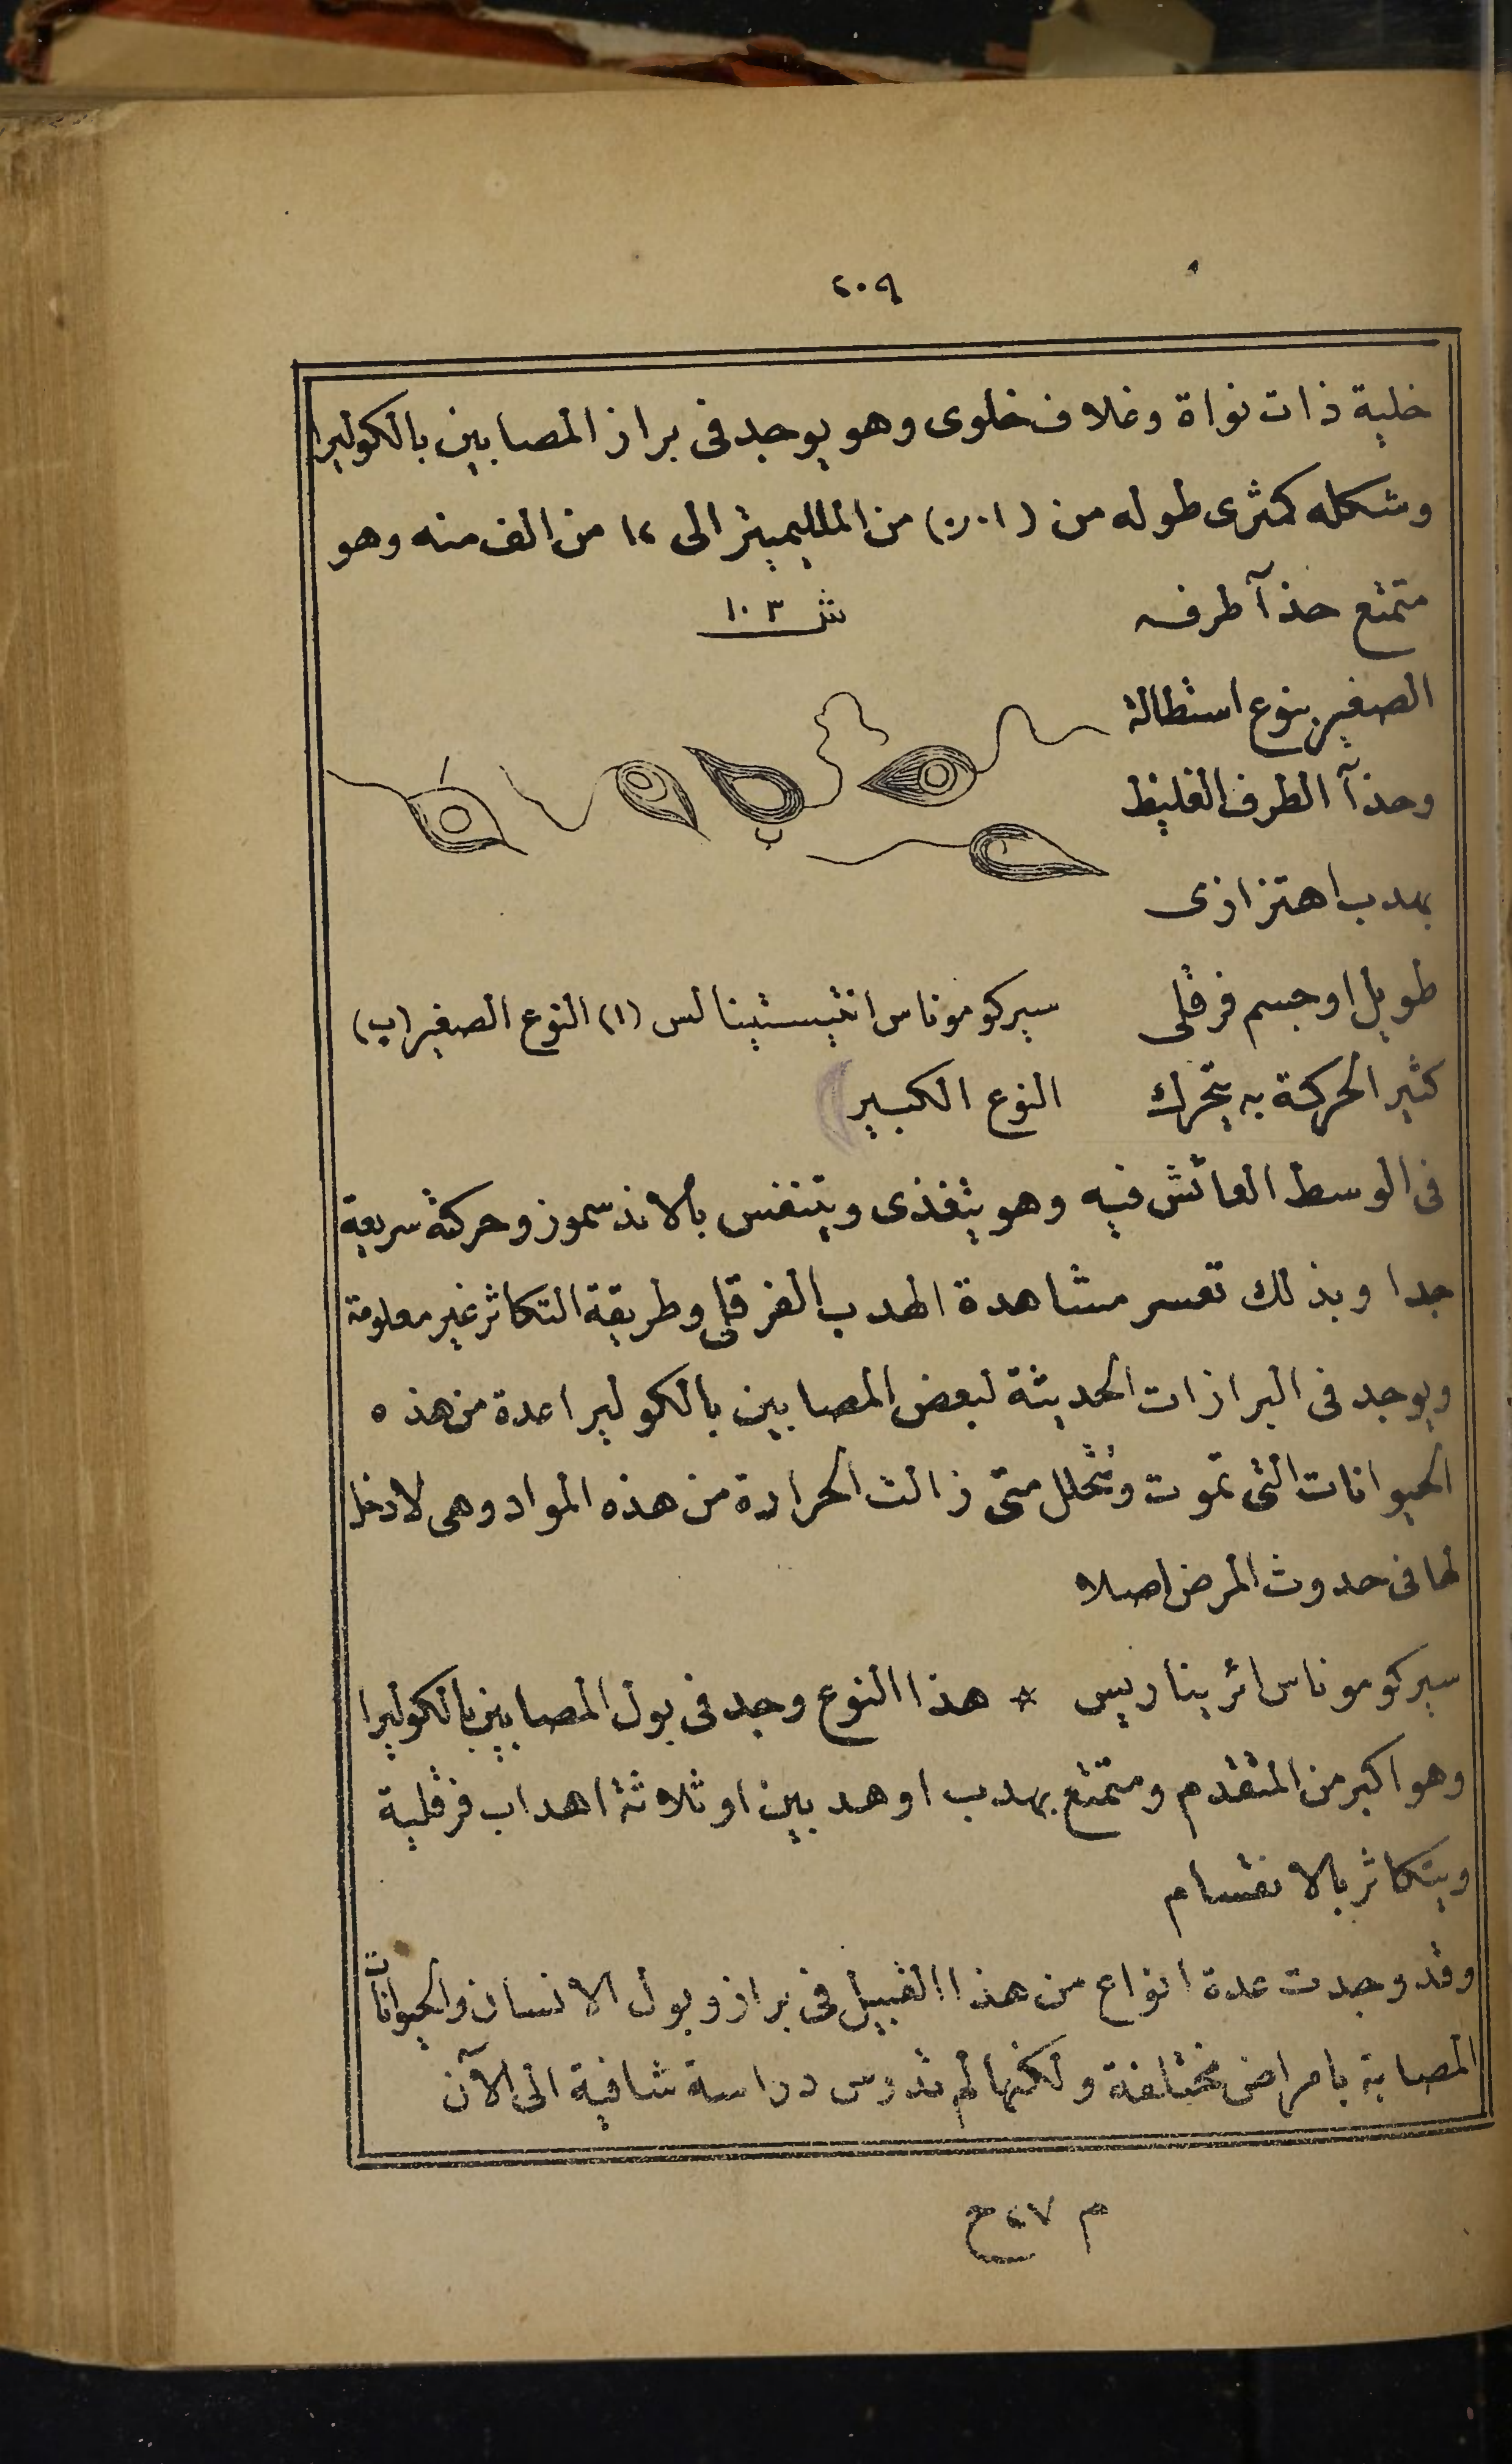 ٢٠٩
خلية ذات نواة وغلاف خلوى وهو يوجد فى براز المصابين بالكوليرا
وشكله كمثرى طوله من (٠٫٠١) من الملليميتر الى ١٢ من الف منه وهو
متمتع حذآ طرفه
الصغير بنوع استطالة
وحذآ الطرف الغليظ
بهدب اهتزازى
طويل او جسم فرقلى
كثير الحركة به يتحرك
ش ١٠٣
ا
ب
سيركوموناس انتيستينالس (ا) النوع الصغير (ب)
النوع الكبير
فى الوسط العائش فيه وهو يتغذى ويتنفس بالاندسموز وحركة سريعة
جدا وبذلك تعسر مشاهدة الهدب الفرقلى وطريقة التكاثر غير معلومة
ويوجد فى البرازات الحديثة لبعض المصابين بالكوليرا عدة من هذه
الحيوانات التى تموت وتتحلل متى زالت الحرارة من هذه المواد وهى لادخل
لها فى حدوث المرض اصلا
سيركوموناس ائريناريس * هذا النوع وجد فى بول المصابين بالكوليرا
وهو اكبر من المتقدم ومتمتع بهدب او هدبين او ثلاثة اهداب فرقلية
ويتكاثر بالانقسام
وقد وجدت عدة انواع من هذا القبيل فى براز وبول الانسان والحيوانات
المصابة بامراض مختلفة ولكنها لم تدرس دراسة شافية الى الآن
م ٢٧ ح